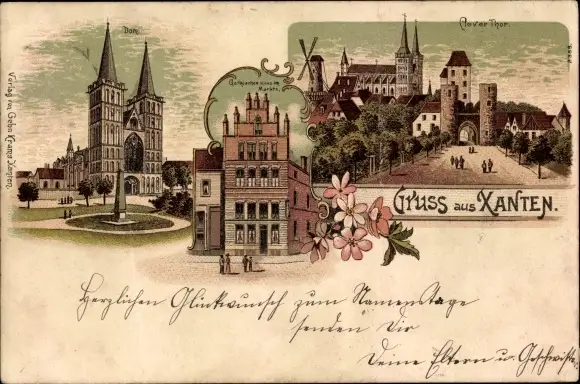 Dom.
Clever Thor.
Gothisches Haus am
Markte.
Verlag von Gebr. Krams Xanten.
Gruss aus Xanten.
Herzlichen Glückwunsch zum Namenstage
senden Dir
Deine Eltern u. Geschwister